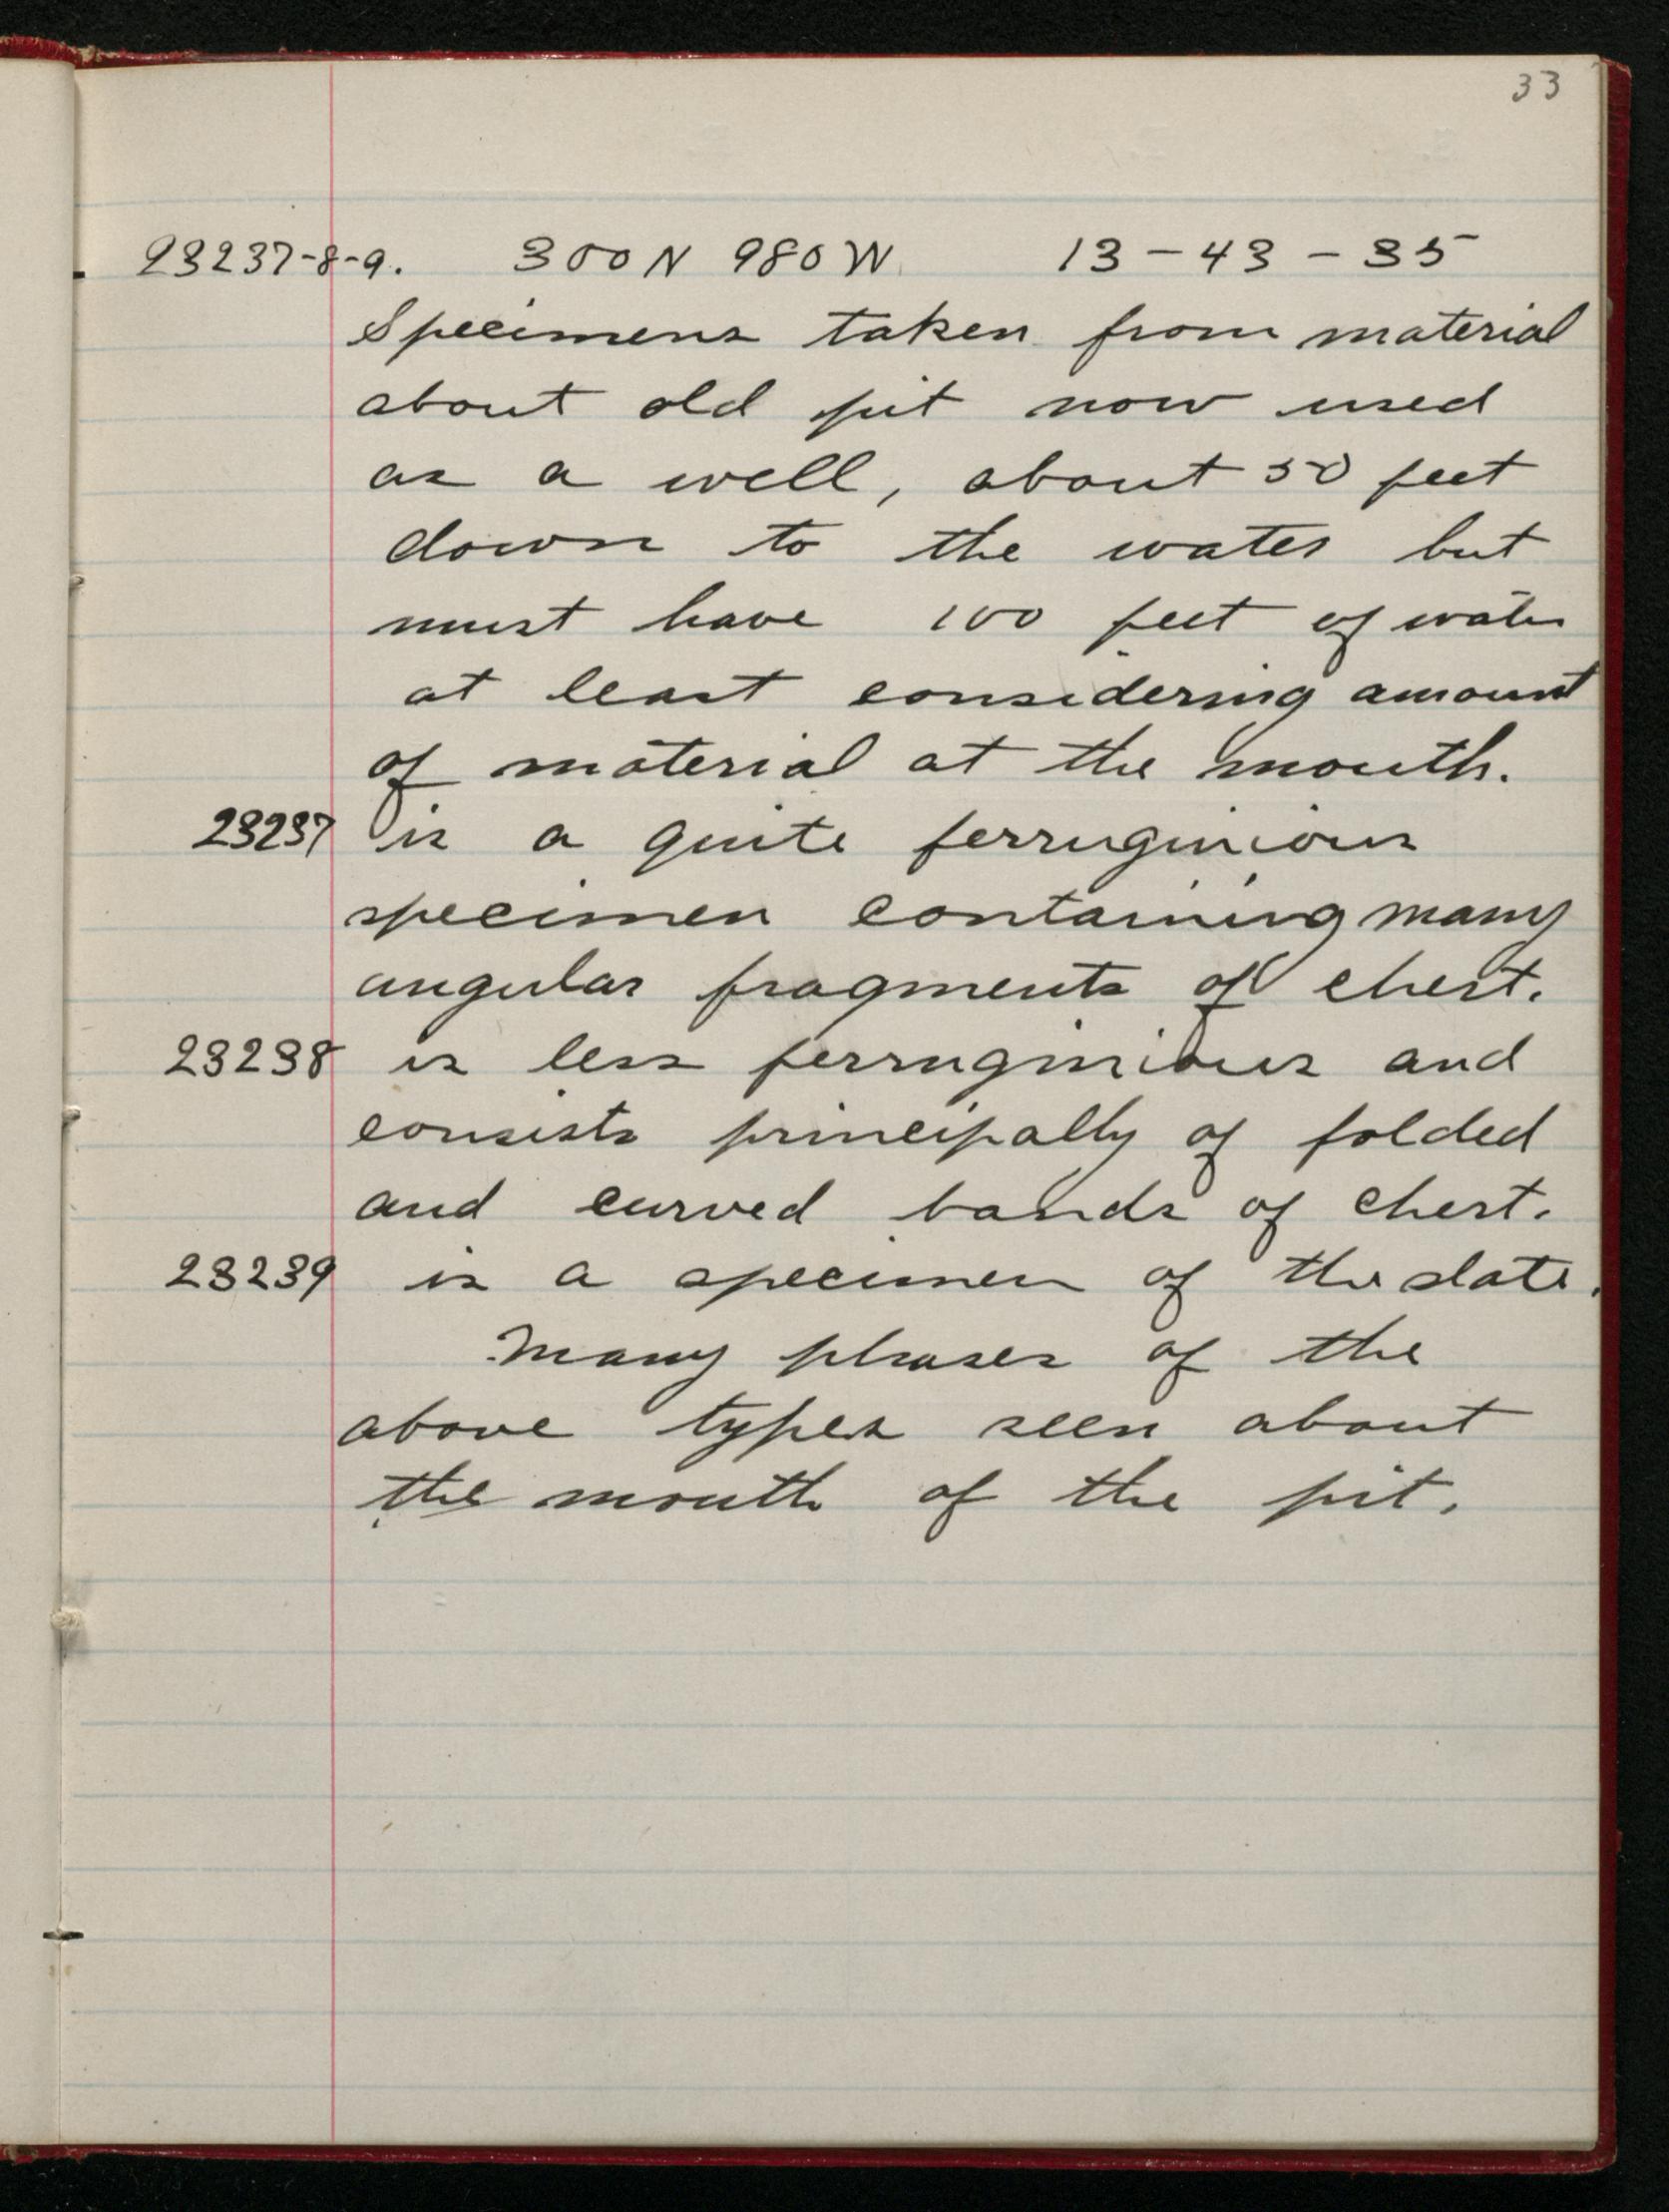 33
23237-8-9. 300 N 980 W. 13-43-35
Specimens taken from material
about old pit now used
as a well, about 50 feet
down to the water but
must have 100 feet of water
at least considering amount
of material at the mouth.
23237 is a quite ferruginious
specimen containing many
angular fragments of chert.
23238 is less ferruginious and
consists principally of folded
and curved bands of chert.
23239 is a specimen of the slate.
Many phases of the
above types seen about
the mouth of the pit.